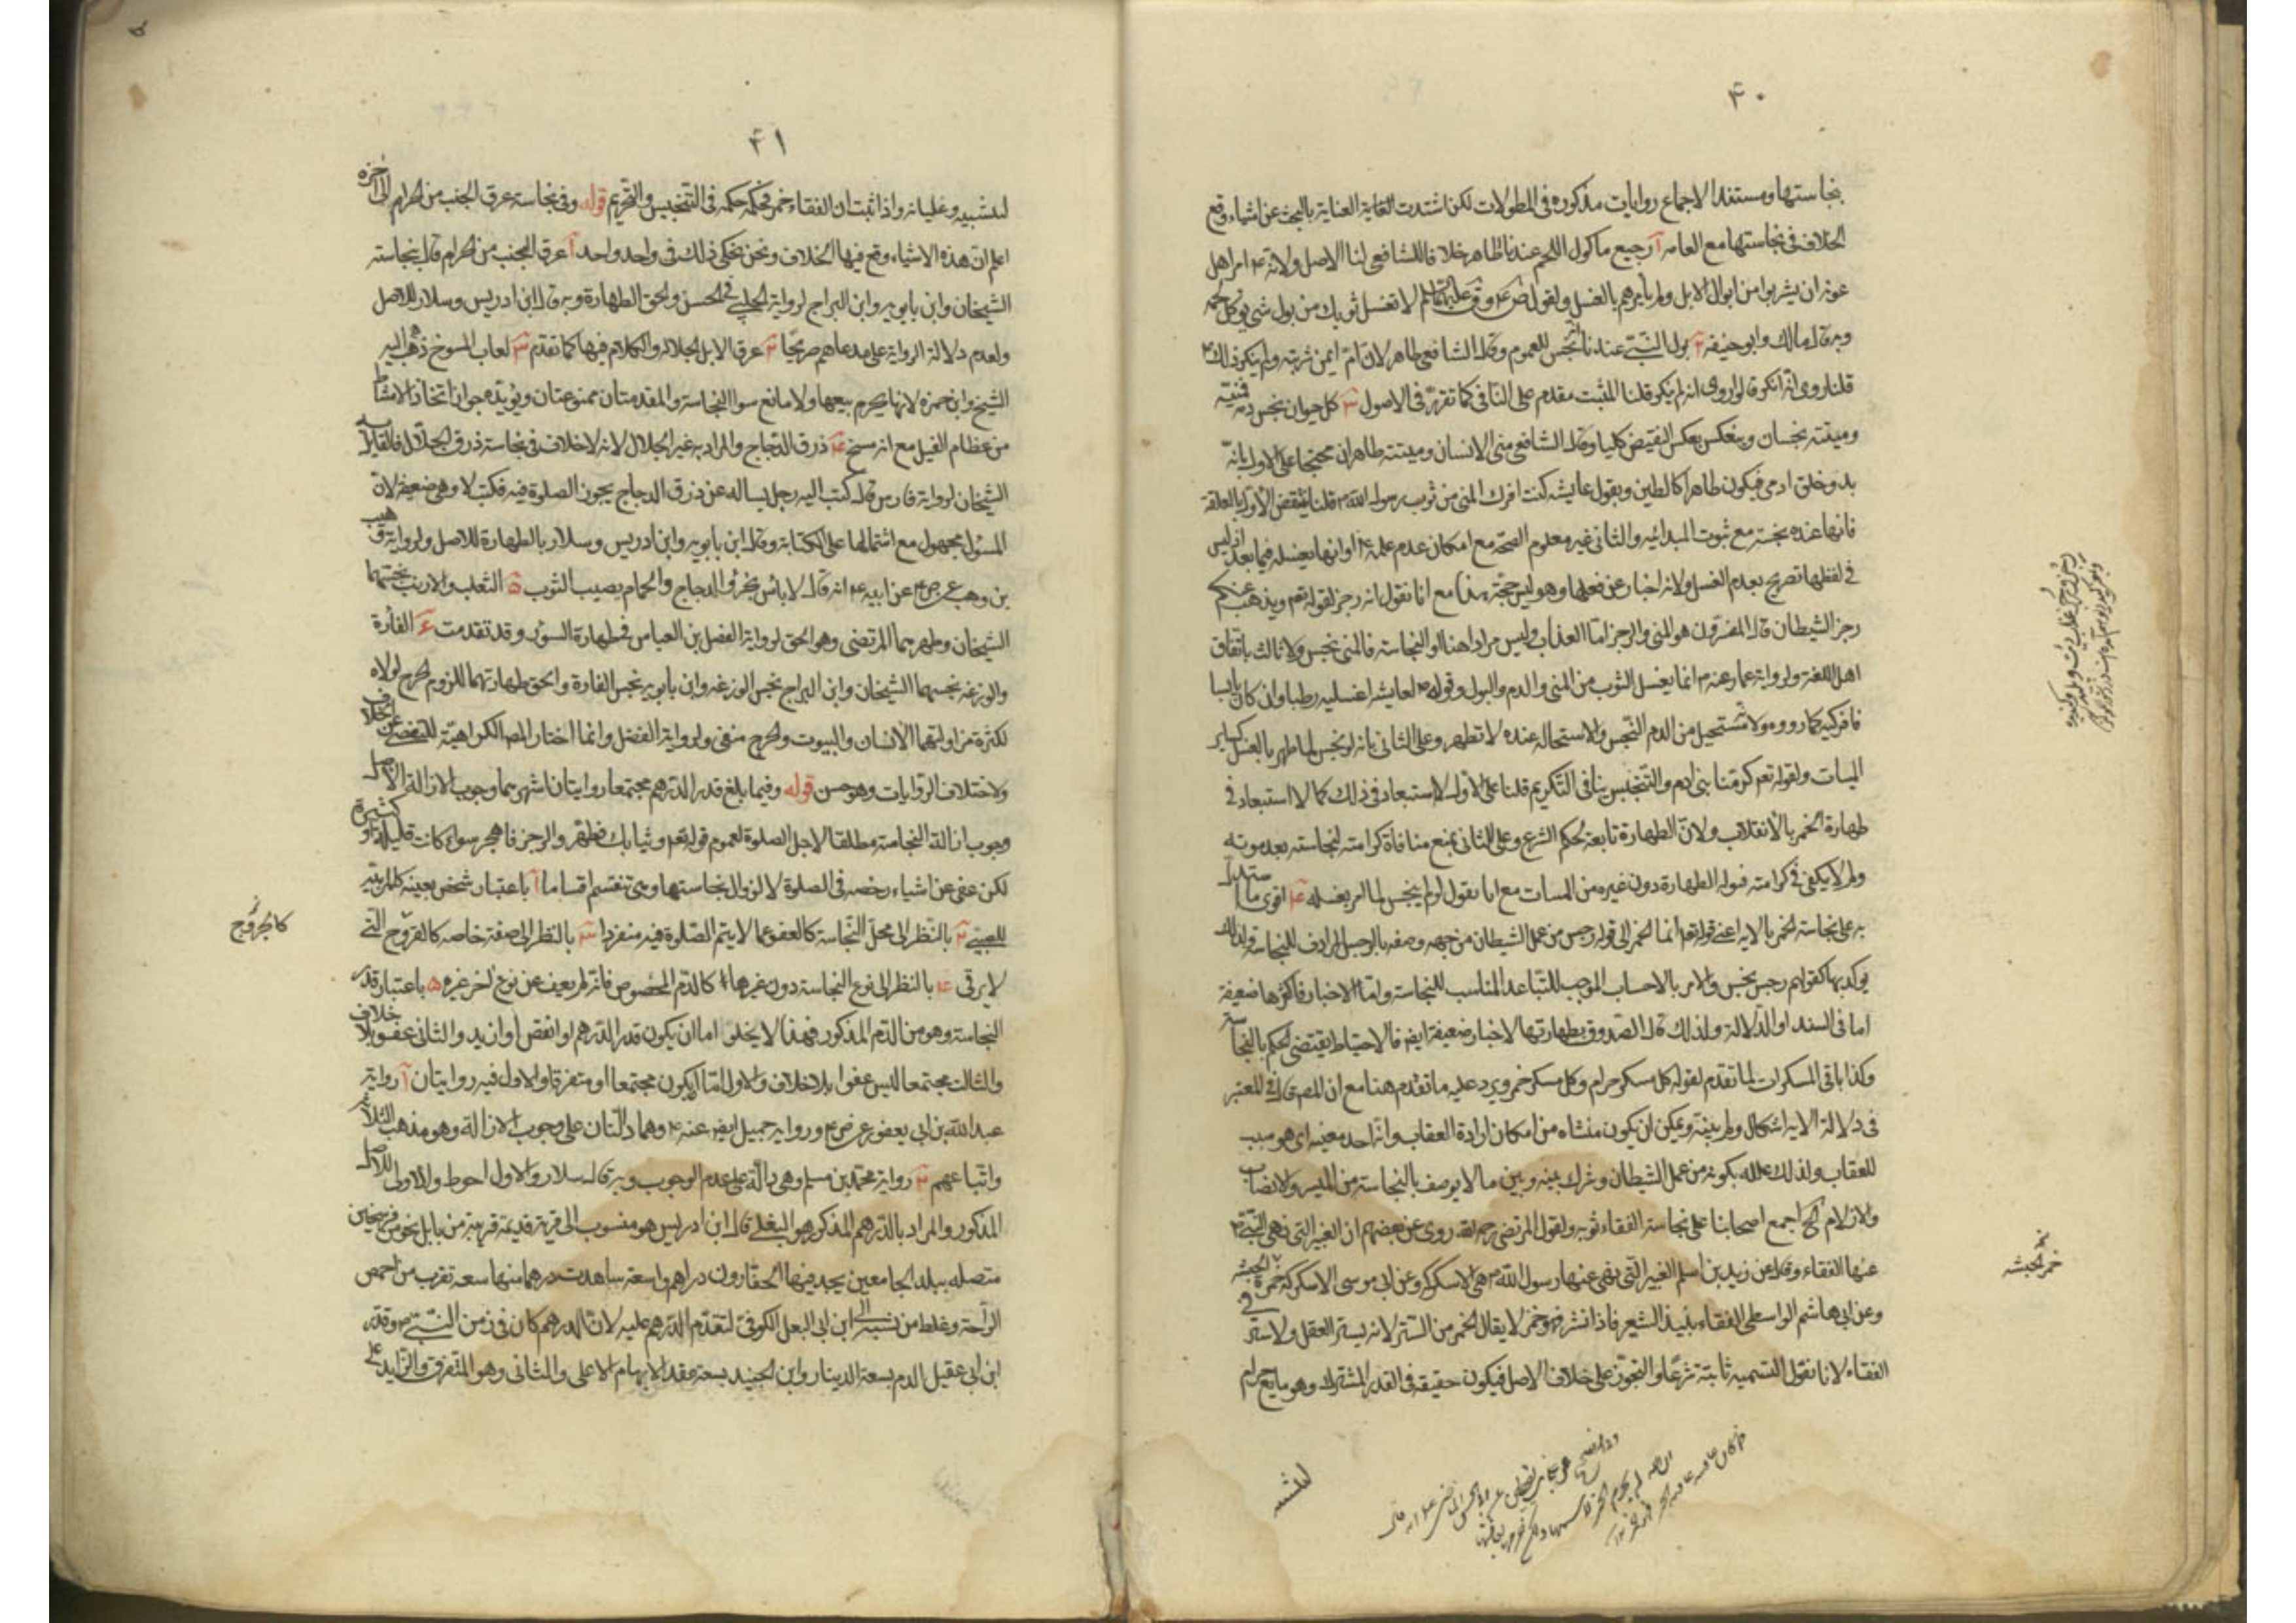 ۴۰
بنجاستها ومستند الاجماع روايات مذكورة فى المطولات لكن اشتدت العناية بالبحث عن اشياء وقع
الخلاف فى نجاستها مع العامه آ رجيع ماكول اللحم عندنا طاهر خلافا للشافعى لنا الاصل ولانه ص امر اهل
عرنه ان يشربوا من ابوال الابل ولم يأمرهم بالغسل ولقول لا تغسل ثوبك من بول شىء يوكل لحمه
وبه قال مالك وابو حنيفه ٢ بول النبى عندنا نجس للعموم وقال الشافعى طاهر لان ام ايمن شربته ولم ينكر ذلك
قلنا روى انه انكر قالوا روى انه لم ينكر قلنا المثبت مقدم على النافى كما تقرر فى الاصول ٣ كل حيوان نجس دمه فمنيه
وميتته نجسان وينعكس بعكس النقيض كليا وقال الشافعى منى الانسان وميتته طاهران محتجا على الاول بانه
بدو خلق ادمى فيكون طاهرا كالطين وبقول عايشه كنت افرك المنى من ثوب رسول الله ص قلنا ينتقض الاول بالعلقة
فانها عنده نجسة مع ثبوت المبدائيه والثانى غير معلوم الصحه مع امكان عدم علمه او انها يغسله فيما بعد اذ ليس
فى لفظها تصريح بعدم الغسل ولانه اخبار عن فعلها وهو ليس حجة هذا مع انا نقول انه رجز لقوله تعم ويذهب عنكم
رجز الشيطان قال المفسرون هو المنى والرجز اما العذاب وليس مرادا هنا او النجاسة فالمنى نجس ولا ثالث باتفاق
اهل اللغة ولرواية عمار عنه ص انما يغسل الثوب من المنى والدم والبول وقوله ص لعايشه اغسليه رطبا وان كان يابسا
فافركيه كما رووه ولانه مستحيل من الدم النجس والاستحاله عنده لا تطهر وعلى الثانى بانه لو نجس لما طهر بالغسل كساير
الميتات ولقوله تعم كرمنا بنى ادم والتنجيس ينافى التكريم قلنا على الاول لا استبعاد فى ذلك كما لا استبعاد فى
طهارة الخمر بالانقلاب ولان الطهارة تابعة لحكم الشرع وعلى الثانى بمنع منافاة كرامته لنجاسته بعد موته
ولم لا يكفى فى كرامته قبوله الطهارة دون غيره من الميتات مع انا نقول لو لم ينجس لما امر بغسله ۴ اقوى ما استدل
به على نجاسة الخمر بالايه اعنى قوله تعم انما الخمر الى قوله رجس من عمل الشيطان من جهه وصفه بالرجس المرادف للنجاسة ولذلك
يوكد بها كقولهم رجس نجس والامر بالاجتناب الموجب للتباعد المناسب للنجاسة واما الاخبار فاكثرها ضعيفة
اما فى السند او الدلالة ولذلك قال الصدوق بطهارتها لاخبار ضعيفة ايضا فالاحتياط يقتضى الحكم بالنجاسة
وكذا باقى المسكرات لما تقدم لقوله كل مسكر حرام وكل مسكر خمر ويرد عليه ما تقدم هنا مع ان المص قال فى المعتبر
فى دلالة الايه اشكال ولم يبينه ويمكن ان يكون منشاه من امكان ارادة العقاب وانه احد معنييه اى هو سبب
للعقاب ولذلك علله بكونه من عمل الشيطان وشرك بينه وبين ما لا يوصف بالنجاسة من الميسر والانصاب
والازلام اجمع اصحابنا على نجاسة الفقاء ولقول المرتضى رحمه الله روى عن بعضهم ان الغبير التى نهى النبى ص
عنها الفقاء وقال عن زيد بن اسلم الغبير التى نهى عنها رسول الله ص هى الاسكركه وعن ابى موسى الاسكركه خمر الحبشه
وعن ابى هاشم الواسطى الفقاء نبيذ الشعير فاذا نش فهو خمر لا يقال الخمر من الستر لانه يستر العقل ولا ستر فى
الفقاء لانا نقول التسميه ثابتة شرعا والتجوز على خلاف الاصل فيكون حقيقه فى القدر المشترك وهو مايع حرام
خمر الحبشه
للشبه
۴۱
للشبيه وغليانه واذا ثبت ان الفقاء خمر فحكمه حكمه فى التنجيس والتحريم قوله وفى نجاسة عرق الجنب من الحرام الى اخره
اعلم ان هذه الاشياء وقع فيها الخلاف ونحن نحكى ذلك فى واحد واحد آ عرق الجنب من الحرام قال بنجاسته
الشيخان وابن بابويه وابن البراج لرواية الحلبى فى الحسن والحق الطهارة وبه قال ابن ادريس وسلار للاصل
ولعدم دلالة الرواية على مدعاهم صريحا ٢ عرق الابل الجلاله والكلام فيها كما تقدم ٣ لعاب المسوخ ذهب اليه
الشيخ وابن حمزه لانها يحرم بيعها ولا مانع سوا النجاسة والمقدمتان ممنوعتان ويؤيده جواز اتخاذ الامشاط
من عظام الفيل مع انه مسخ ۴ ذرق الدجاج والمراد به غير الجلال لانه لا خلاف فى نجاسة ذرق الجلال فالقايل
الشيخان لرواية فارس قال كتب اليه رجل يساله عن ذرق الدجاج يجوز الصلوة فيه فكتب لا وهى ضعيفه لان
المسئول مجهول مع اشتمالها على الكتابة وقال ابن بابويه وابن ادريس وسلار بالطهارة للاصل ولرواية وهب
بن وهب عن ص ع عن ابيه ع انه قال لا باس بخرؤ الدجاج والحمام يصيب الثوب ۵ الثعلب والارنب نجسهما
الشيخان وطهرهما المرتضى وهو الحق لرواية الفضل بن العباس فى طهارة السؤر وقد تقدمت ۶ الفارة
والوزغه نجسهما الشيخان وابن البراج نجس الوزغه وابن بابويه نجس الفارة والحق طهارتهما للزوم الحرج لولاه
لكثرة مزاولتهما الانسان والبيوت والحرج منفى ولرواية الفضل وانما اختار المص الكراهية للتفصى عن الخلاف
ولاختلاف الروايات وهو حسن قوله وفيما بلغ قدر الدرهم مجتمعا روايتان اشهرهما وجوب الازالة الاصل
وجوب ازالة النجاسة مطلقا لاجل الصلوة لعموم قوله تعم وثيابك فطهر والرجز فاهجر سواء كانت قليلة او كثيرة
لكن عفى عن اشياء رخصه فى الصلوة لا لزوال نجاستها وهى تنقسم اقساما آ باعتبار شخص بعينه كالمربيه
للصبى ٢ بالنظر الى محل النجاسة كالعفو عما لا يتم الصلوة فيه منفردا ٣ بالنظر الى صفة خاصه كالقروح التى
لا يرقى ۴ بالنظر الى نوع النجاسة دون غيرها كالدم المخصوص فانه لم يعف عن نوع اخر غيره ۵ باعتبار قدر
النجاسة وهو من الدم المذكور فهذا لا يخلو اما ان يكون قدر الدرهم او انقص او ازيد والثانى عفو بلا خلاف
والثالث مجتمعا ليس عفوا بلا خلاف والاول اما ان يكون مجتمعا او متفرقا والاول فيه روايتان آ رواية
عبد الله بن ابى يعفور عن ص ع ورواية جميل ايضا عنه ع وهما دالتان على وجوب الازالة وهو مذهب الثلاثة
واتباعهم ٢ رواية محمد بن مسلم وهى دالة على عدم الوجوب وبه قال سلار والاول احوط والاولى للاصل
المذكور والمراد بالدرهم المذكور هو البغلى قال ابن ادريس هو منسوب الى قرية قديمة قريبة من بابل نحو من فرسخين
متصله ببلد الجامعين يجد فيها الحفارون دراهم واسعة شاهدت درهما منها سعة تقرب من اخمص
الراحة وغلط من نسبه الى ابن ابى البغل الكوفى لتقدم الدرهم عليه لان الدرهم كان فى زمن النبى ص وقدر
ابن ابى عقيل الدم بسعة الدينار وابن الجنيد بسعة عقد الابهام الاعلى والثانى وهو المتفرق والزايد على
كالجروح